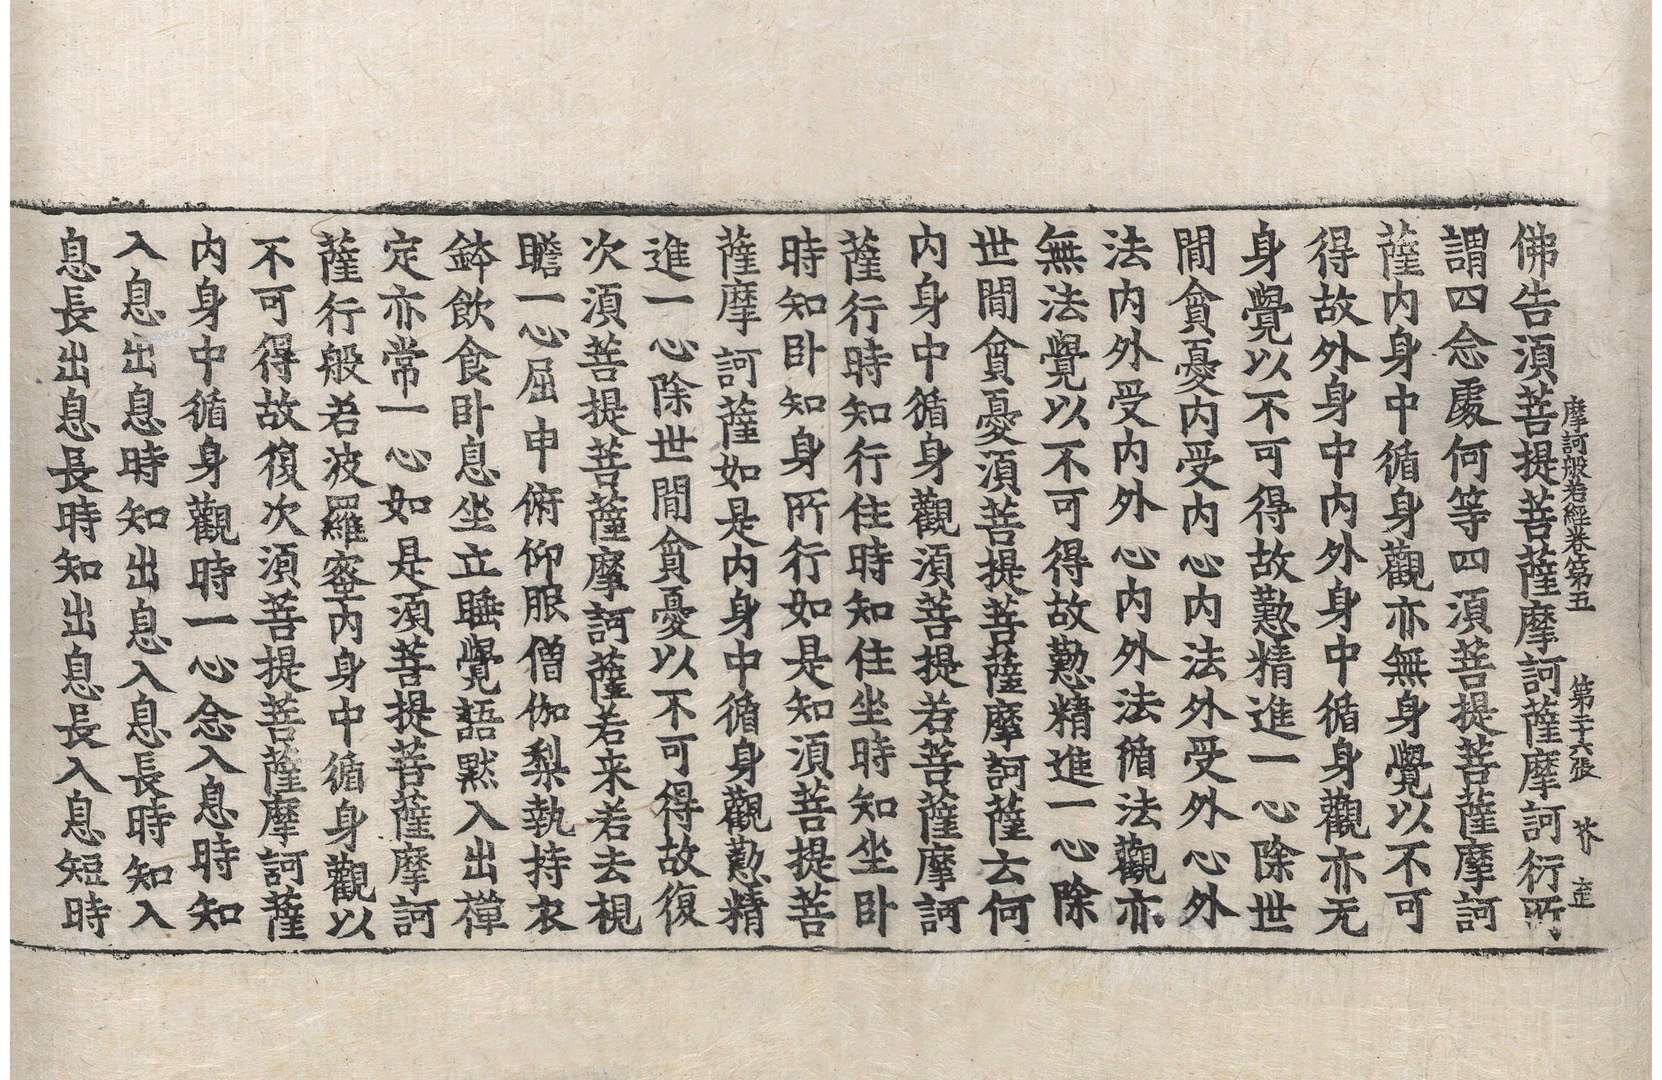 摩訶般若經卷第五　第二十六張　芥
佛告湏菩提菩薩摩訶薩摩訶衍所
謂四念處何等四湏菩提菩薩摩訶
薩内身中循身觀亦無身覺以不可
得故外身中内外身中循身觀亦无
身覺以不可得故懃精進一心除世
間貪憂内受内心内法外受外心外
法内外受内外心内外法循法觀亦
無法覺以不可得故懃精進一心除
世間貪憂湏菩提菩薩摩訶薩云何
内身中循身觀湏菩提若菩薩摩訶
薩行時知行住時知住坐時知坐卧
時知卧知身所行如是知湏菩提菩
薩摩訶薩如是内身中循身觀懃精
進一心除世間貪憂以不可得故復
次湏菩提菩薩摩訶薩若来若去視
瞻一心屈申俯仰服僧伽梨執持衣
鉢飲食卧息坐立睡覺語默入出禪
定亦常一心如是湏菩提菩薩摩訶
薩行般若波羅蜜内身中循身觀以
不可得故復次湏菩提菩薩摩訶薩
内身中循身觀時一心念入息時知
入息出息時知出息入息長時知入
息長出息長時知出息長入息短時